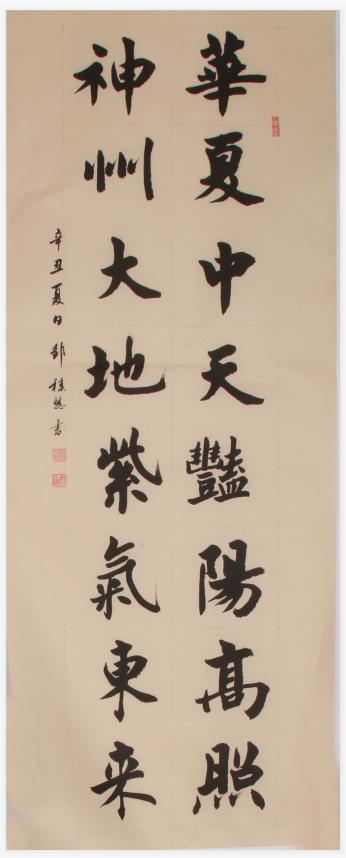 華夏中天豔陽高照
神州大地紫氣東来
辛丑夏日鄒積慧書